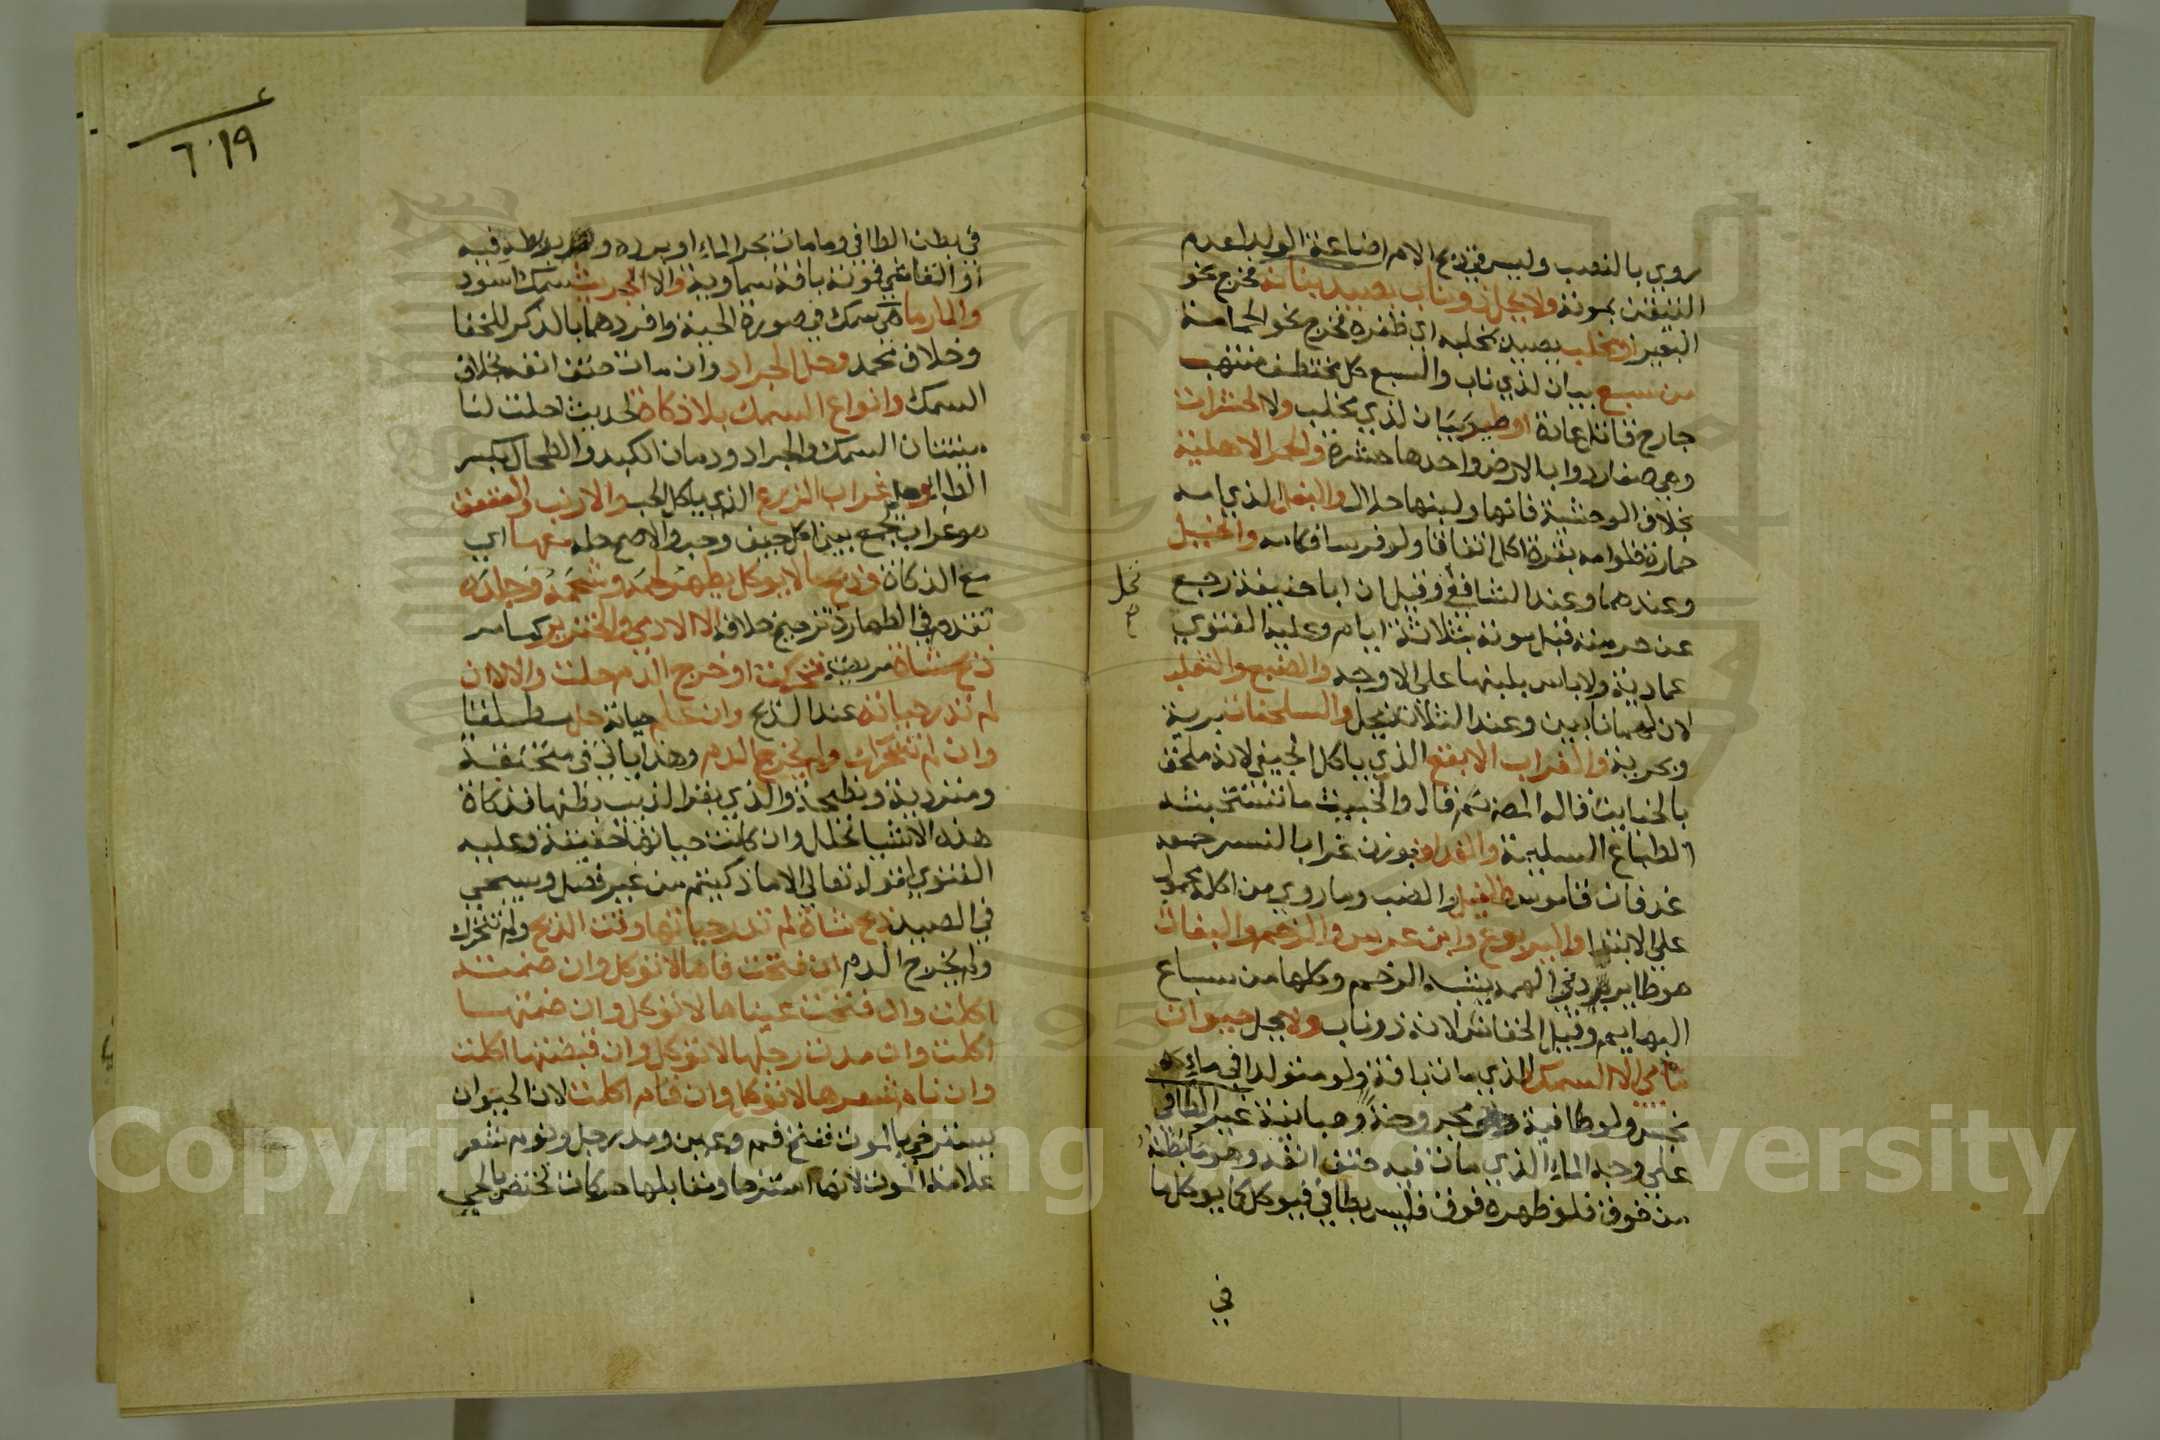 روي بالنصب وليس في ذبح الام اضاعة الولد لعدم
التيقن بموته ولا يحل ذو ناب يصيد بنابه فخرج نحو
البعير او مخلب يصيد بمخلبه اي ظفره فخرج نحو الحمامة
من سبع بيان لذي ناب والسبع كل مختطف منتهب
جارح قاتل عادة او طير بيان لذي مخلب ولا الحشرات
وهي صغار دواب الارض واحدها حشرة والحمر الاهلية
بخلاف الوحشية فانها ولبنها حلال والبغل الذي امه
حمارة فلو امه بقرة اكل اتفاقا ولو فرسا فكامه والخيل
وعندهما وعند الشافعي وقيل ان ابا حنيفة رجع
تحل
عن حرمته قبل موته بثلاثة ايام وعليه الفتوي
عمادية ولا باس بلبنها علي الاوجه والضبع والثعلب
لان لهما نابين وعند الثلاثة يحل والسلحفاة برية
وبحرية والغراب الابقع الذي ياكل الجيف لانه ملحق
بالخبايث قاله المصـ ثم قال والخبيث ما تستخبثه
الطباع السليمة والغداف بوزن غراب النسر جمعه
غدفان قاموس والفيل والضب وما روي من اكله محمول
علي الابتدا واليربوع وابن عرس والرخم والبغاث
هو طاير دني الهمة يشبه الرخم وكلها من سباع
البهايم وقيل الخفاش لانه ذو ناب ولا يحل حيوان
مآي الا السمك الذي مات بافة ولو متولدا في ماء
نجس ولو طافية مجروحة وهبانية غير الطافي
علي وجه الماء الذي مات فيه حتف انفه وهو ما بطنه
من فوق فلو ظهره فوق فليس بطافي فيوكل كما يوكل ما
في
٦٠١٩
في بطن الطافي وما مات بحر الماء او برده و بربطه فيه
او القا شي فموته بافة سماوية والا الجريث سمك اسود
والمارماهي سمك في صورة الحية وافردهما بالذكر للخفا
وخلاف محمد وحل الجراد وان مات حتف انفه بخلاف
السمك وانواع السمك بلا ذكاة لحديث احلت لنا
ميتتان السمك والجراد ودمان الكبد والطحال بكسر
الطا وحل غراب الزرع الذي ياكل الحب والارنب والعقعق
هو غراب يجمع بين اكل جيف وحب والاصح حله معها اي
مع الذكاة وذبح ما لا يوكل يطهر لحمه وشحمه وجلده
تقدم في الطهارة ترجيح خلافه الا الادمي والخنزير كما مر
ذبح شاة مريضة فتحركت او خرج الدم حلت والا لا ان
لم تدر حياته عند الذبح وان علم حياته حل مطلقا
وان لم تتحرك ولم يخرج الدم وهذا ياتي في منخنقة
ومتردية ونطيحة والذي بقر الذيب بطنها فذكاة
هذه الاشيا تحلل وان كانت حياتها خفيفة وعليه
الفتوي لقوله تعالي الا ما ذكيتم من غير فصل وسيجي
في الصيد ذبح شاة لم تدر حياتها وقت الذبح ولم تتحرك
ولم يخرج الدم ان فتحت فاها لا توكل وان ضمته
اكلت وان فتحت عيناها لا توكل وان ضمتهما
اكلت وان مدت رجلها لا توكل وان قبضتها اكلت
وان نام شعرها لا توكل وان قام اكلت لان الحيوان
يسترخي بالموت ففتح فم وعين ومد رجل ونوم شعر
علامة الموت لانها استرخا ومقابلها حركات تختص بالحي
Copyright